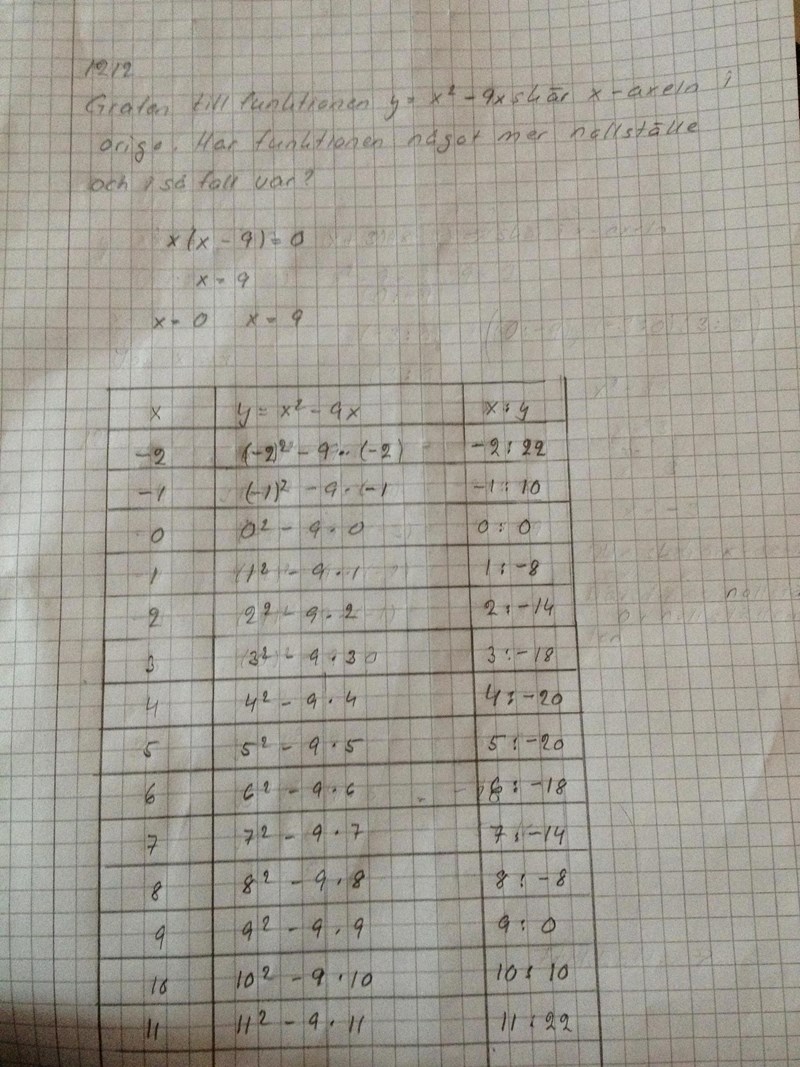 1212
Grafen till funktionen y = x² - 9x skär x-axeln i
origo. Har funktionen något mer nollställe
och i så fall var?
x(x - 9) = 0
x = 9
x = 0 x = 9
x y = x² - 9x x : y
-2 (-2)² - 9 · (-2) -2 : 22
-1 (-1)² - 9 · (-1 -1 : 10
0 0² - 9 · 0 0 : 0
1 1² - 9 · 1 1 : -8
2 2² - 9 · 2 2 : -14
3 3² - 9 · 3 3 : -18
4 4² - 9 · 4 4 : -20
5 5² - 9 · 5 5 : -20
6 6² - 9 · 6 6 : -18
7 7² - 9 · 7 7 : -14
8 8² - 9 · 8 8 : -8
9 9² - 9 · 9 9 : 0
10 10² - 9 · 10 10 : 10
11 11² - 9 · 11 11 : 22